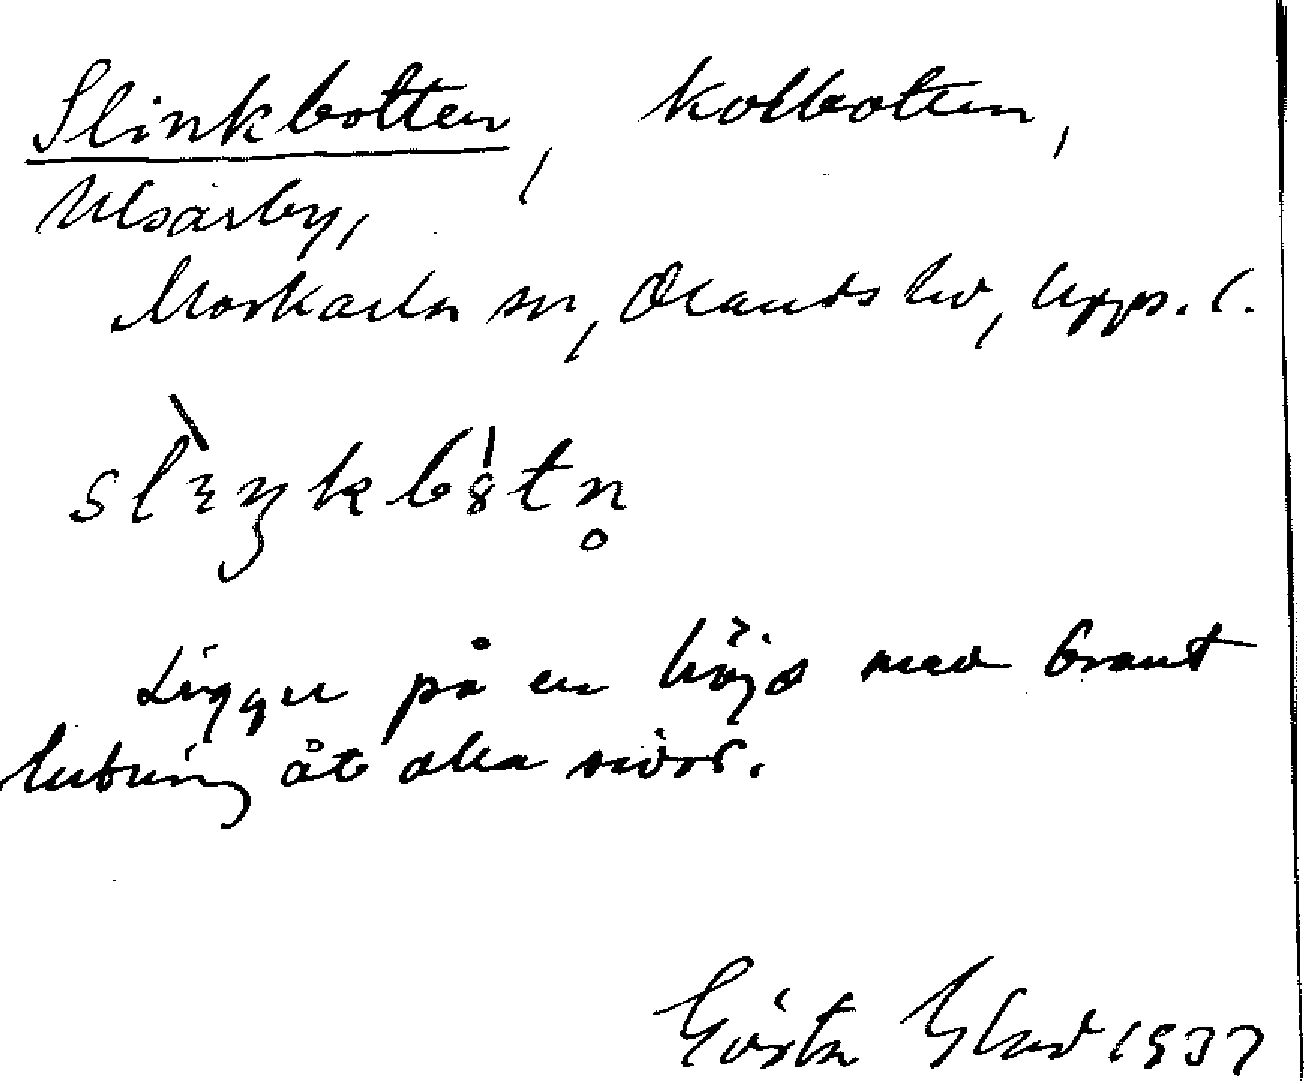 Slinkbotten, kolbotten,
Ulvsarby,
Morkarla sn, Olands hd, Upps. l.
Ligger på en höjd med brant
lutning åt alla sidor.
Gösta Glad 1937